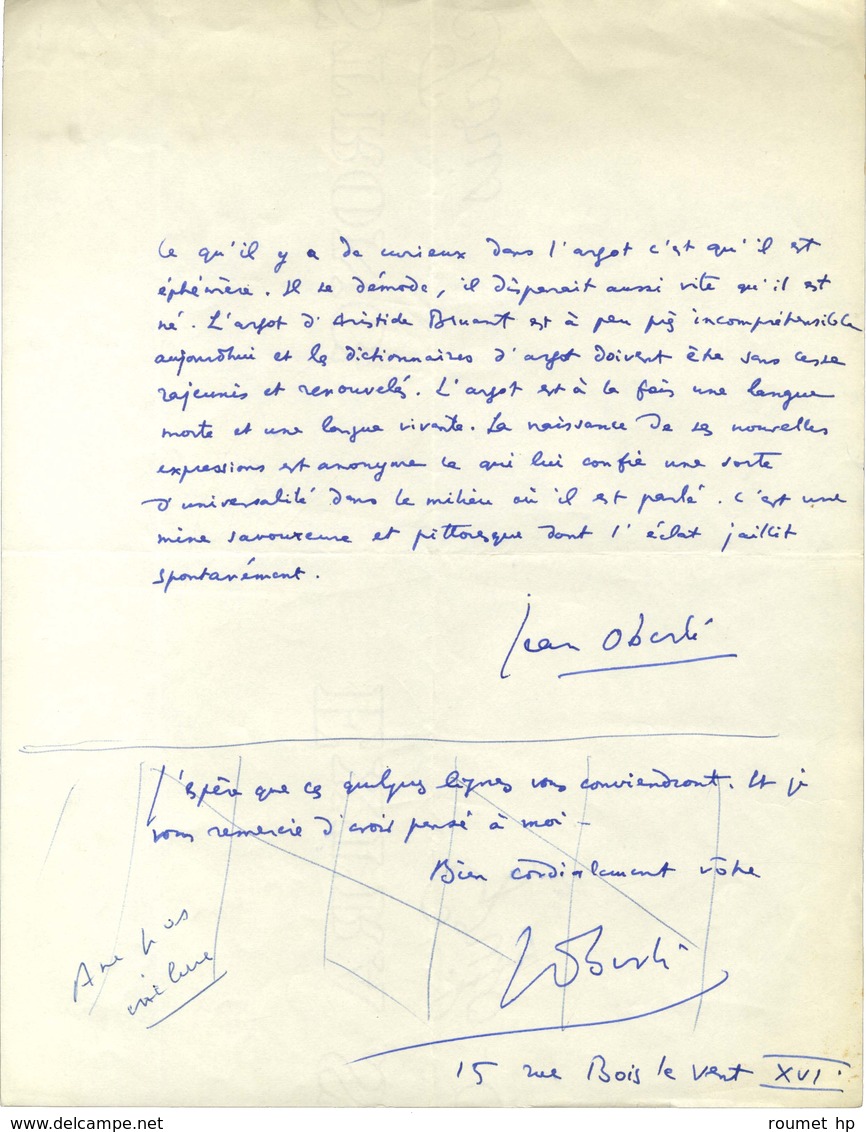 Ce qu'il y a de curieux dans l'argot c'est qu'il est
éphémère. Il se démode, il disparait aussi vite qu'il est
né. L'argot d'Aristide Bruant est à peu près incompréhensible
aujourdhui et les dictionnaires d'argot doivent être sans cesse
rajeunis et renouvelés. L'argot est à la fois une langue
morte et une langue vivante. La naissance de ses nouvelles
expressions est anonyme ce qui lui confie une sorte
d'universalité dans le milieu où il est parlé. C'est une
mine savoureuse et pittoresque dont l'éclat jaillit
spontanément.
Jean Oberlé
J'espère que ces quelques lignes vous conviendront. Et je
vous remercie d'avoir pensé à moi -
Bien cordialement vôtre
JOberlé
A ne pas
inclure
15 rue Bois le Vent XVI
www.delcampe.net
roumet hp